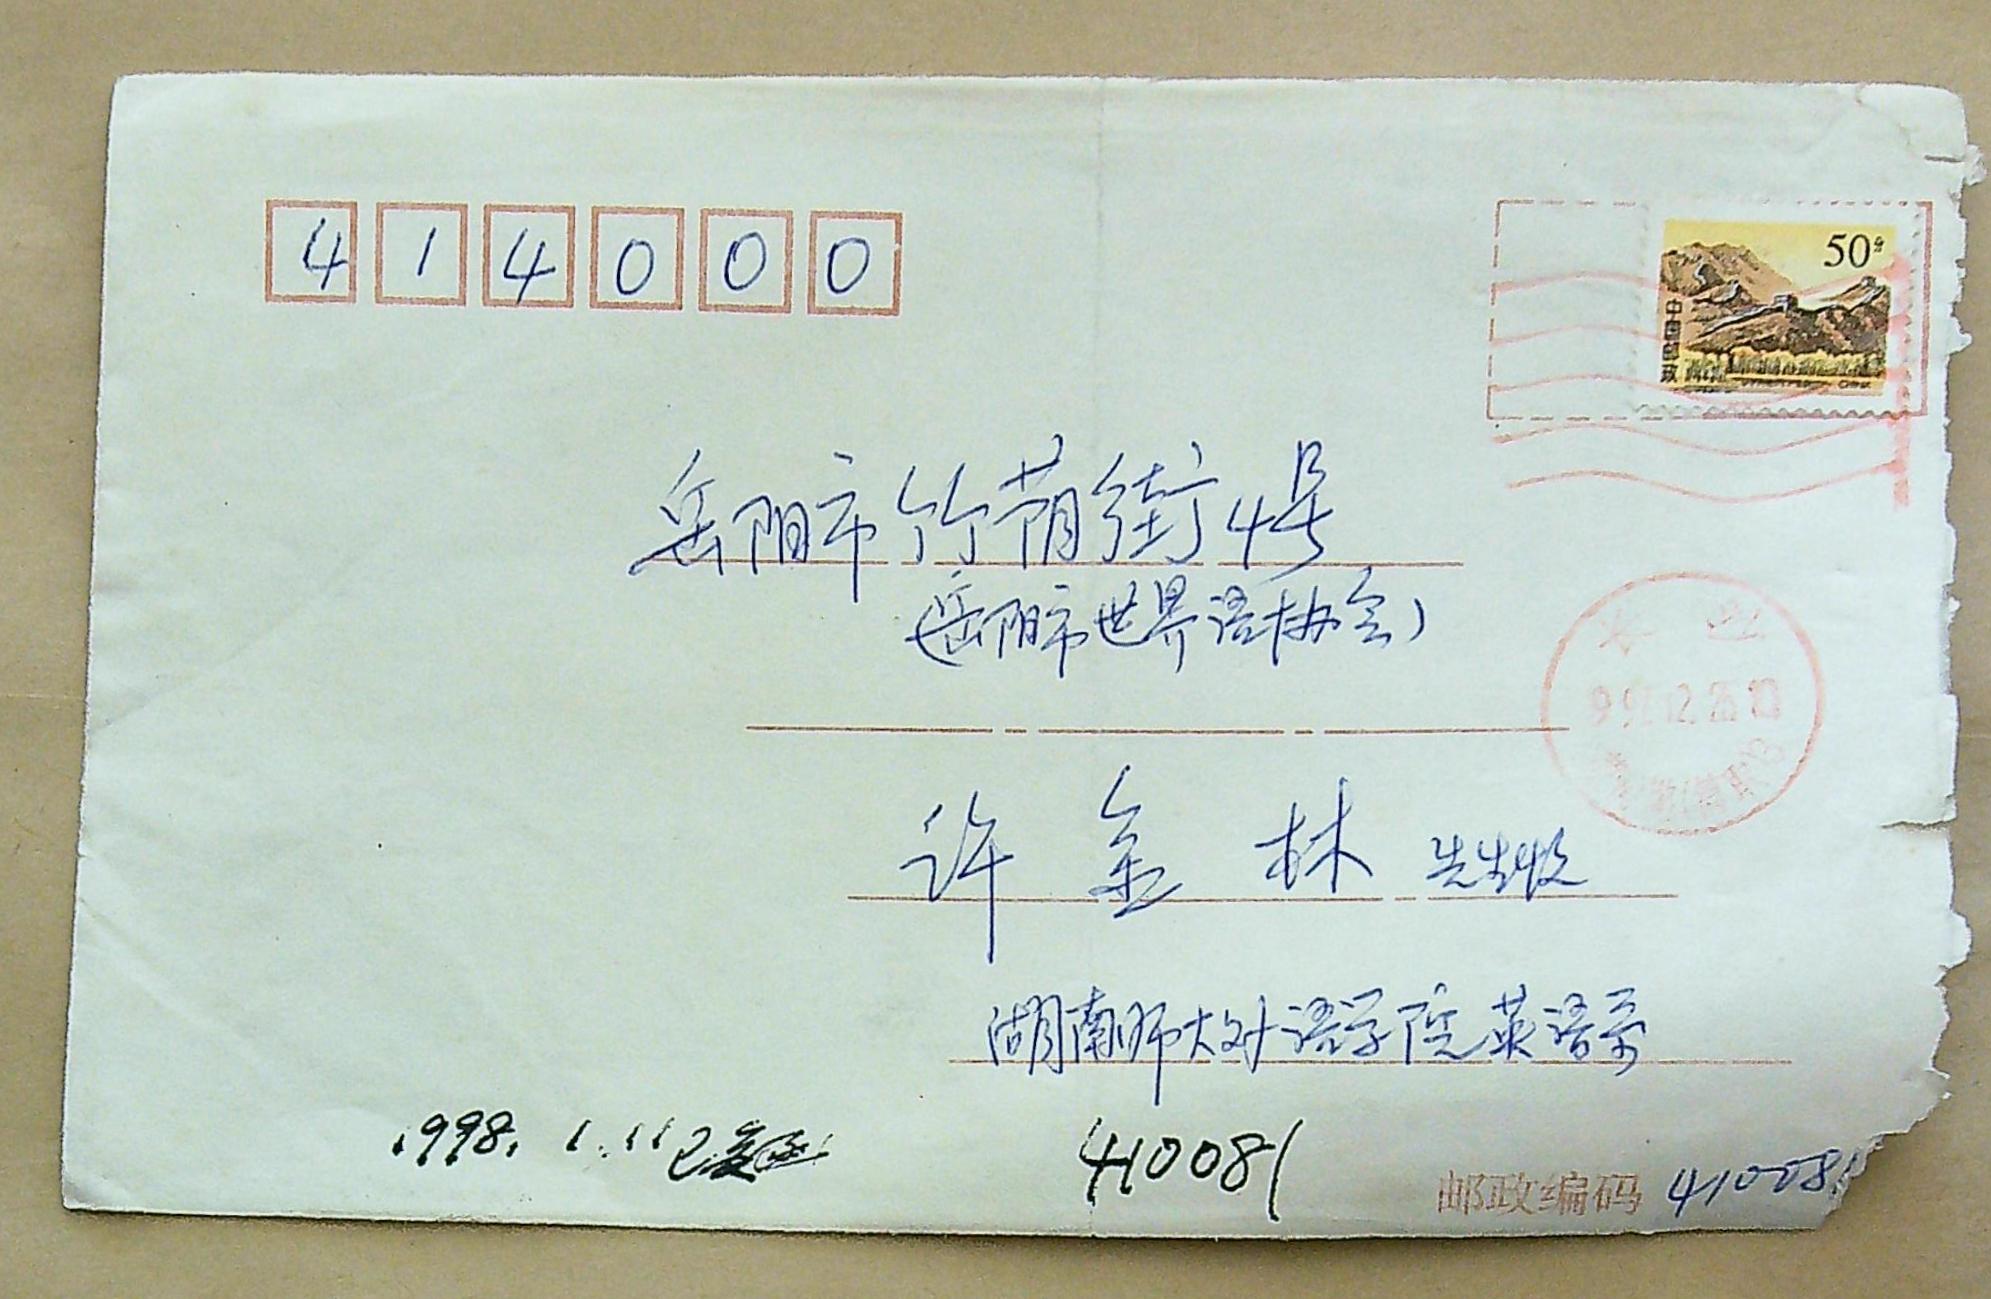 414000
50分
中国邮政
岳阳市竹荫街4号
(岳阳市世界语协会)
许金林 先生收
湖南师大外语学院英语系
1998.1.11已复
410081
邮政编码 410081